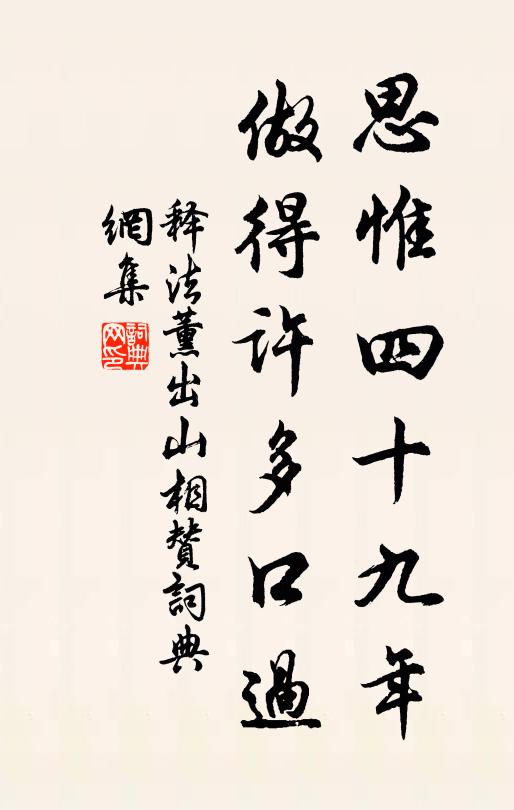 思惟四十九年
做得许多口過
释法薰出山相赞詞典
網集
詞典
网印